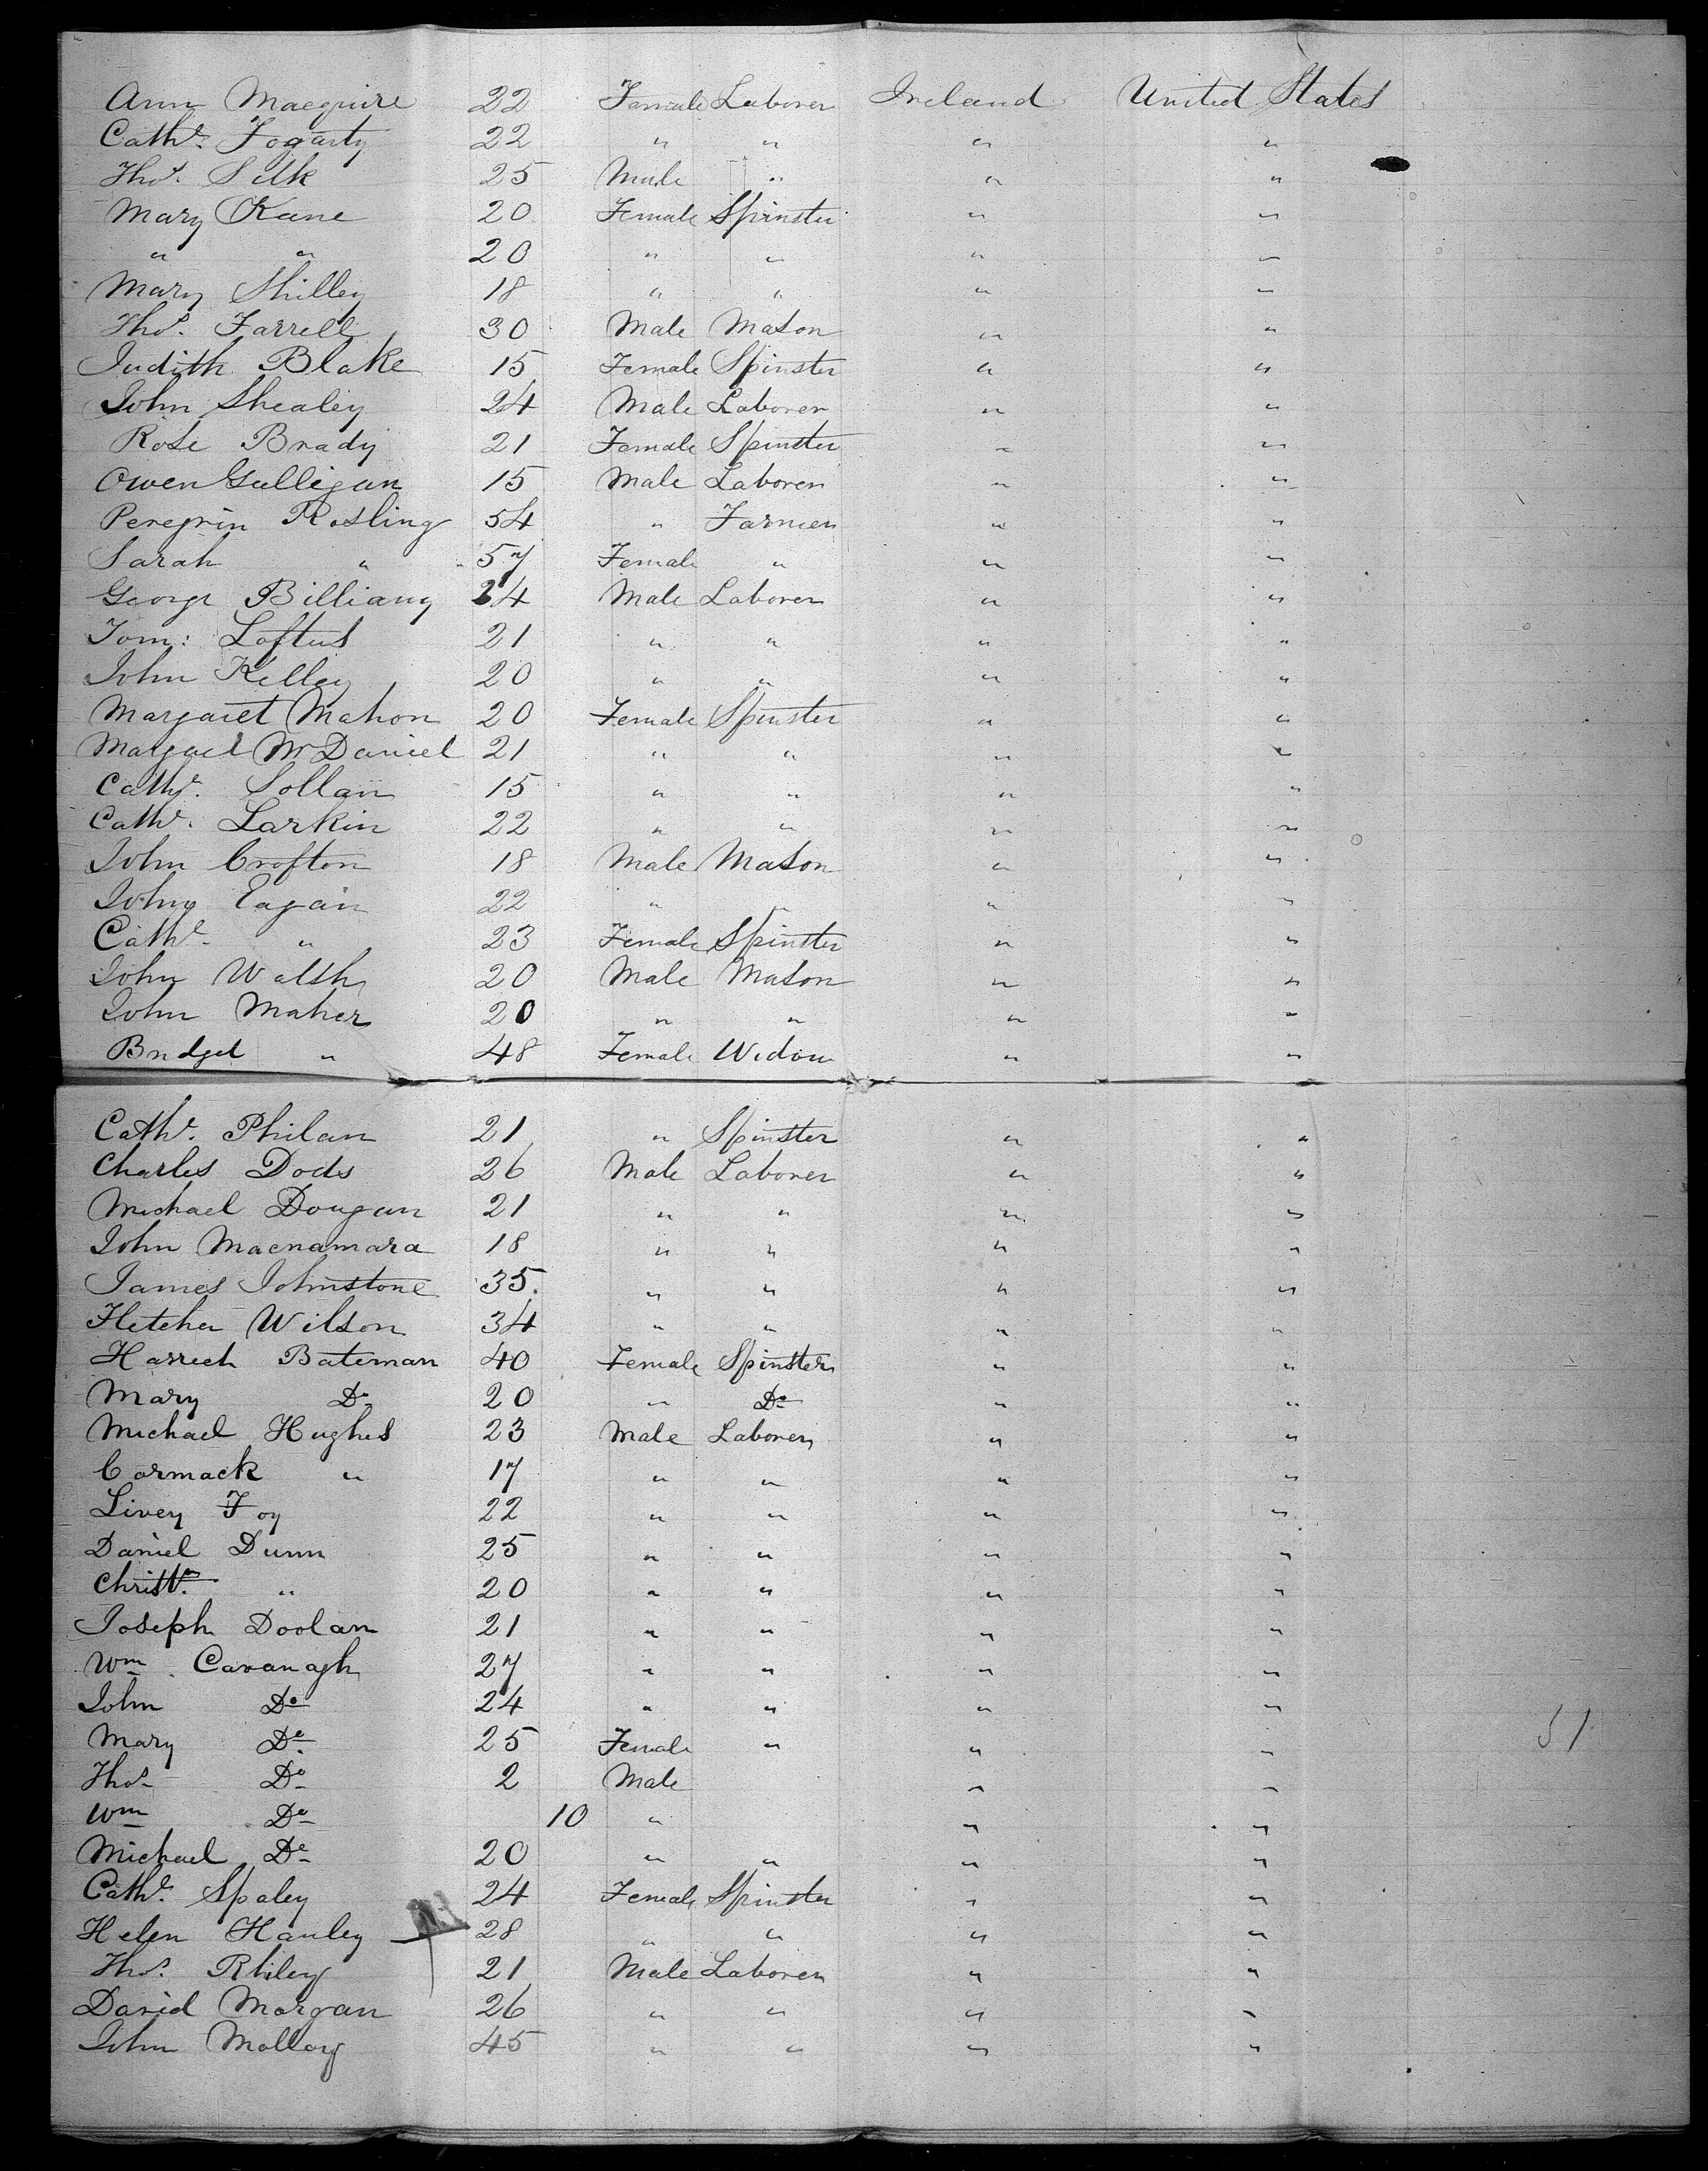 Ann Macguire 22 Female Laborer Ireland United States
Cathe. Fogarty 22 " " " "
Thos. Silk 25 Male " " "
Mary Kane 20 Female Spinster " "
" " 20 " " " "
Mary Shilley 18 " " " "
Thos. Farrell 30 Male Mason " "
Judith Blake 15 Female Spinster " "
John Shealey 24 Male Laborer " "
Rose Brady 21 Female Spinster " "
Owen Gulligan 15 Male Laborer " "
Peregrin Rosling 54 " Farmer " "
Sarah " 57 Female " " "
George Billiany 24 Male Laborer " "
Tom: Loftus 21 " " " "
John Kelley 20 " " " "
Margaret Mahon 20 Female Spinster " "
Margaet McDaniel 21 " " " "
Cathe. Sollan 15 " " " "
Cathe. Larkin 22 " " " "
John Crofton 18 Male Mason " "
John Eagan 22 " " " "
Cathe. " 23 Female Spinster " "
John Walsh 20 Male Mason " "
John Maher 20 " " " "
Bridget " 48 Female Widow " "
Cathe. Philan 21 " Spinster " "
Charles Dods 26 Male Laborer " "
Michael Dougan 21 " " " "
John Macnamara 18 " " " "
James Johnstone 35. " " " "
Fletcher Wilson 34 " " " "
Harriech Bateman 40 Female Spinster " "
Mary Do 20 " Do " "
Michael Hughes 23 Male Laborer " "
Cormack " 17 " " " "
Livey Foy 22 " " " "
Daniel Dunn 25 " " " "
Christr. " 20 " " " "
Joseph Doolan 21 " " " "
Wm. Cavanagh 27 " " " "
John Do 24 " " " "
Mary Do. 25 Female " " " 51
Thos Do 2 Male " "
Wm Do 10 " " "
Michael Do 20 " " " "
Cathe. Spaley 24 Female Spinster " "
Helen Hanley 28 " " " "
Thos. Rhiley 21 Male Laborer " "
David Morgan 26 " " " "
John Molloy 45 " " " "